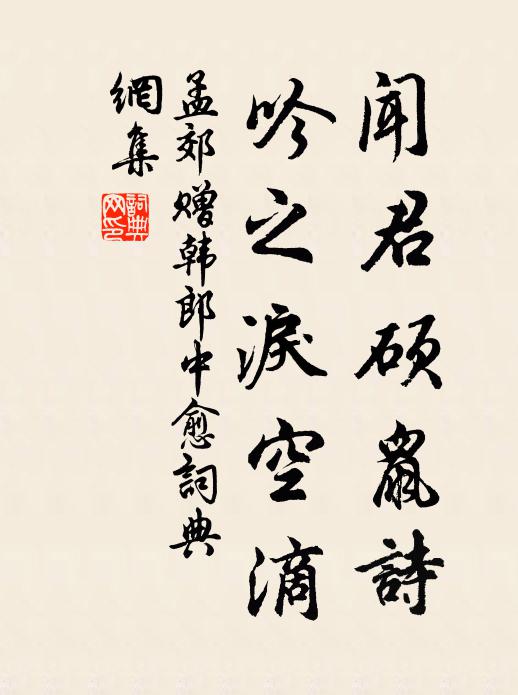 闻君硕鼠詩
吟之淚空滴
孟郊赠韩郎中愈詞典
網集
詞典
网印